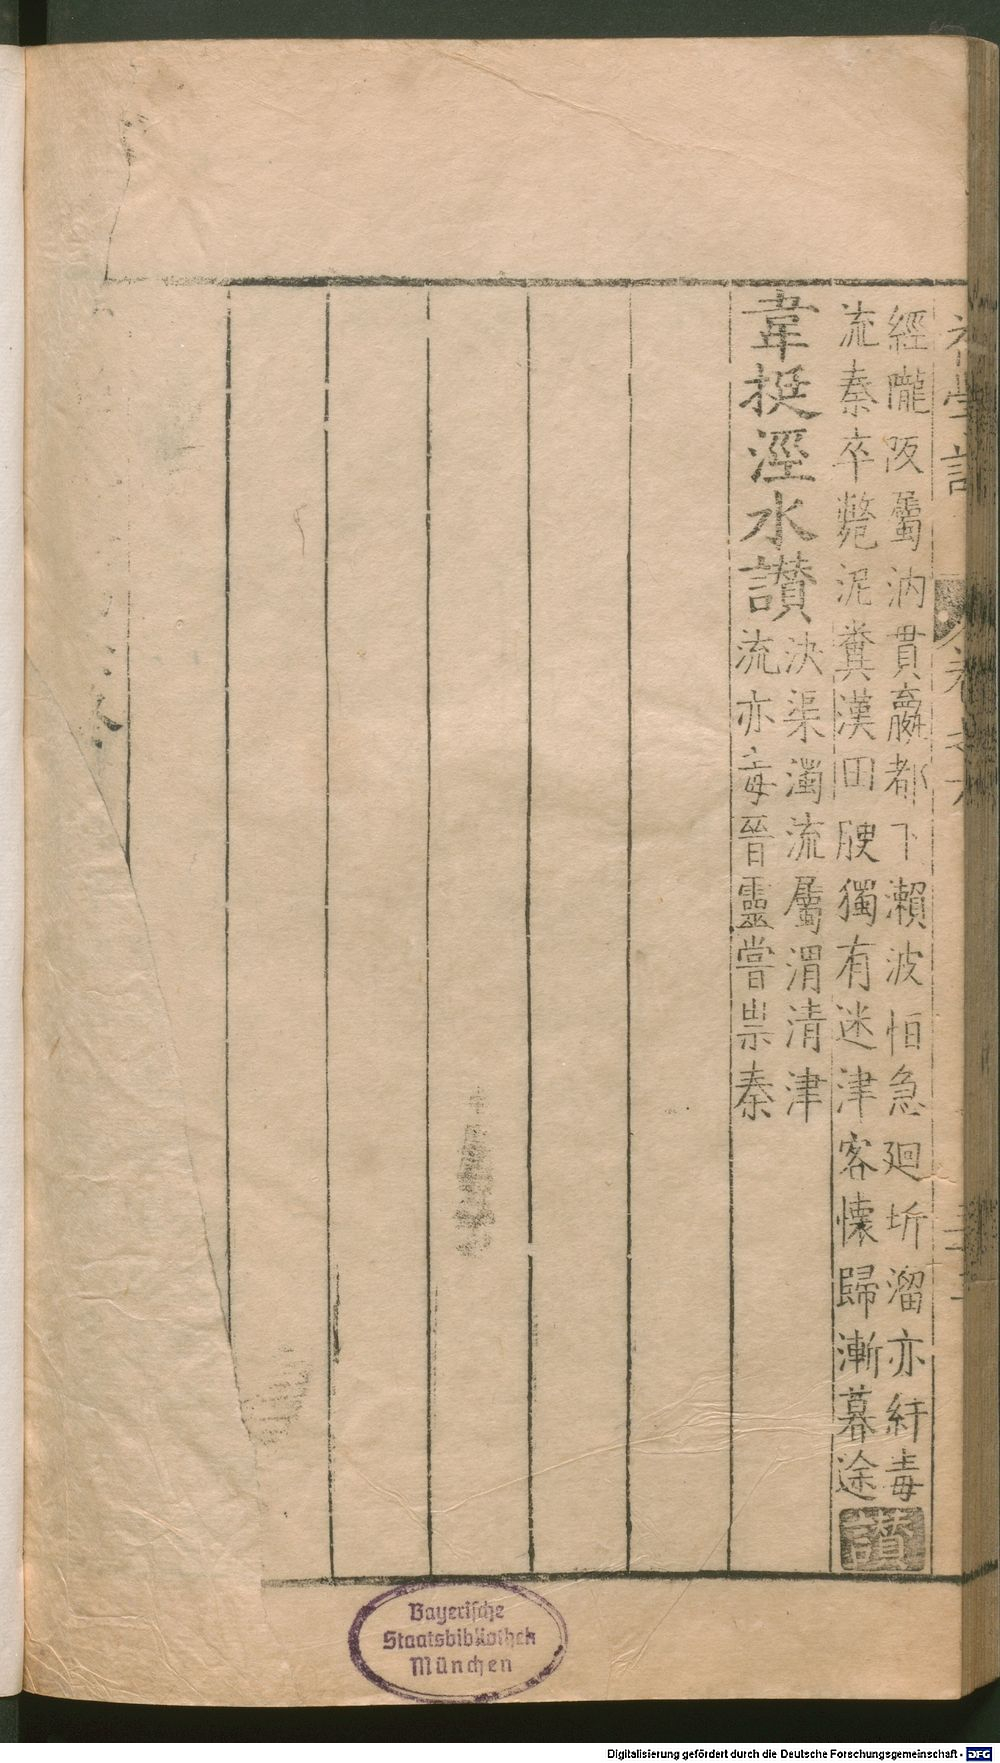 經隴阪屬汭貫嬴都下瀨波怕急廻圻溜亦紆毒
流秦卒斃泥糞漢田腴獨有迷津客懷歸漸暮途
讃
韋挺涇水讃
決渠濁流屬渭清津
流亦毒晉靈嘗祟秦
Bayerische
Staatsbibliothek
München
Digitalisierung gefördert durch die Deutsche Forschungsgemeinschaft - DFG